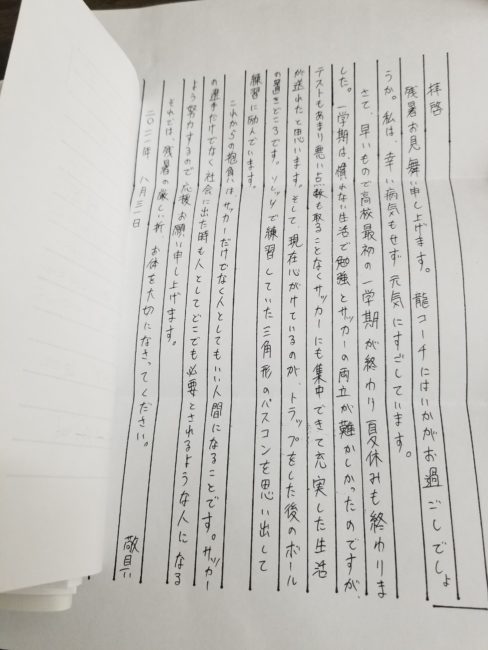 拝啓
残暑お見舞い申し上げます。龍コーチにはいかがお過ごしでしょ
うか。私は、幸い病気もせず元気にすごしています。
さて、早いもので高校最初の一学期が終わり夏休みも終わりま
した。一学期は、慣れない生活で勉強とサッカーの両立が難かしかったのですが、
テストもあまり悪い点数も取ることなくサッカーにも集中できて充実した生活
が送れたと思います。そして、現在心がけているのが、トラップをした後のボール
の置きどころです。ソレッソで練習していた三角形のパスコンを思い出して
練習に励んでいます。
これからの抱負はサッカーだけでなく人としてもいい人間になることです。サッカー
の選手だけでなく社会に出た時も人としてどこでも必要とされるような人になる
よう努力するので応援お願い申し上げます。
それでは、残暑の厳しい折、お体を大切になさってください。
敬具
二〇二一年 八月三一日